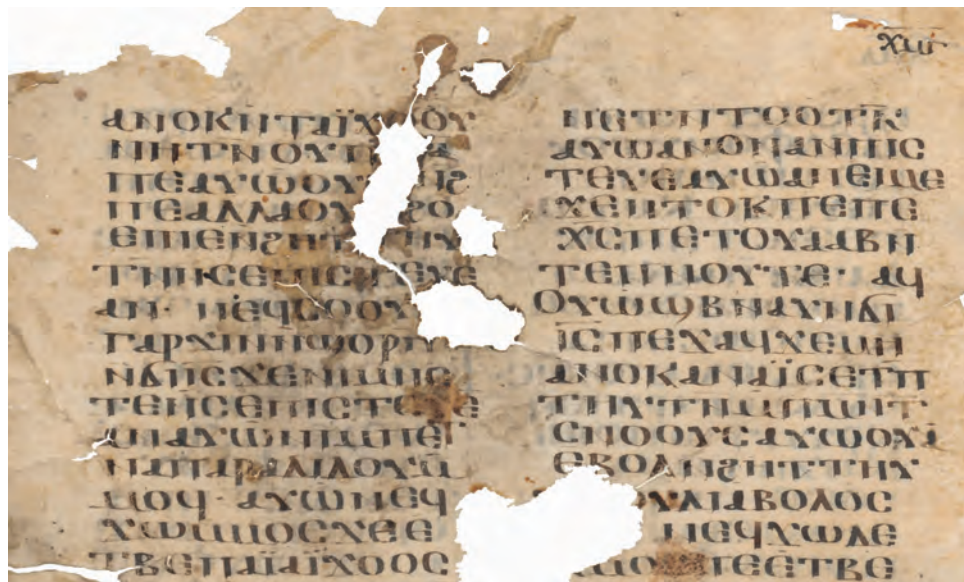 ⲁⲛⲟⲕⲛⲧⲁⲓ̈ϫⲟⲟⲩ
ⲛⲏⲧⲛⲟⲩ
ⲡⲉⲁⲩⲱⲟⲩ ϩ
ⲡⲉⲁⲗⲗⲁⲟⲩ ϩⲟ
ⲉⲓⲛⲉⲛϩⲏⲧ ⲏⲩ
ⲧⲛⲛⲥⲉⲡⲓⲥⲧⲉⲩⲉ
ⲁⲛ· ⲛⲉϥⲥⲟⲟⲩ
ⲅⲁⲣϫⲓⲛⲛϣⲟⲣⲡ
ⲛϭⲓⲓ̅ⲥ̅ϫⲉⲛⲓⲙⲛⲉ
ⲧⲉⲛⲥⲉⲡⲓⲥⲧⲉⲩⲉ
ⲁⲛⲁⲩⲱⲛⲓⲙⲡⲉⲧ
ⲛⲁⲡⲁⲣⲁⲇⲓⲇⲟⲩⲙ̅
ⲙⲟϥ· ⲁⲩⲱⲛⲉϥ
ϫⲱⲙⲙⲟⲥϫⲉⲉ
ⲧⲃⲉⲡⲁⲓ̈ⲁⲓϫⲟⲟⲥ
ⲛⲉⲧⲛⲧⲟⲟⲧⲕ̅
ⲁⲩⲱⲁⲛⲟⲛⲁⲛⲡⲓⲥ
ⲧⲉⲩⲉⲁⲩⲱⲁⲛⲉⲓⲙⲉ
ϫⲉⲛⲧⲟⲕⲡⲉⲡⲉ
ⲭ̅ⲥ̅ⲡⲉⲧⲟⲩⲁⲁⲃⲛ
ⲧⲉⲡⲛⲟⲩⲧⲉ· ⲁϥ
ⲟⲩⲱϣⲃⲛⲁⲩⲛϭⲓ
ⲓ̅ⲥ̅ⲡⲉϫⲁϥϫⲉⲙⲏ
ⲁⲛⲟⲕⲁⲛⲁⲓ̈ⲥⲉⲧⲡ
ⲧⲏⲩⲧⲛⲙⲡⲙⲛⲧ
ⲥⲛⲟⲟⲩⲥⲁⲩⲱⲟⲩⲁ
ⲉⲃⲟⲗⲛϩⲏⲧⲧⲏⲩ
ⲟⲩⲇⲓⲁⲃⲟⲗⲟⲥ
ⲛⲉϥϫⲱⲇⲉ
ⲙⲟⲥⲡⲉⲉⲧⲃⲉ